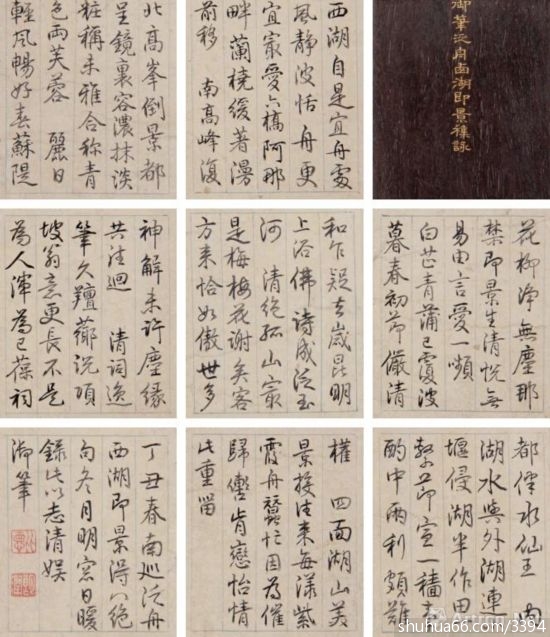 御筆泛舟西湖即景雜詠
西湖自是宜舟處
風静波恬舟更
宜最愛六橋阿那
畔蘭橈緩著漫
前移 南高峰復
北高峯倒景都
呈鏡裏容濃抹淡
粧稱未雅合稱青
色両芙蓉 麗日
輕風暢好春蘇隄
花柳淨無塵那
禁即景生清悦無
易由言愛一嚬
白芷青蒲已覆波
暮春初節儼清
和乍疑去歲昆明
上浴佛詩成泛玉
河 清絶孤山最
是梅梅花謝矣客
方来恰如傲世多
神解未許塵緣
共往迴 清詞逸
筆久羶薌說項
坡翁意更長不是
為人渾為己葆祠
都傍水仙王 南
湖水與外湖連
堰侵湖半作田
節宣一穡事
酌中兩利頗難
權 四面湖山美
景投往来每漾紫
霞舟蠶忙因為催
歸轡肯戀怡情
此重留
丁丑春南巡泛舟
西湖即景得八絶
句冬月明窓日暖
録此以志清娱
御筆
shuhua66.com/3394